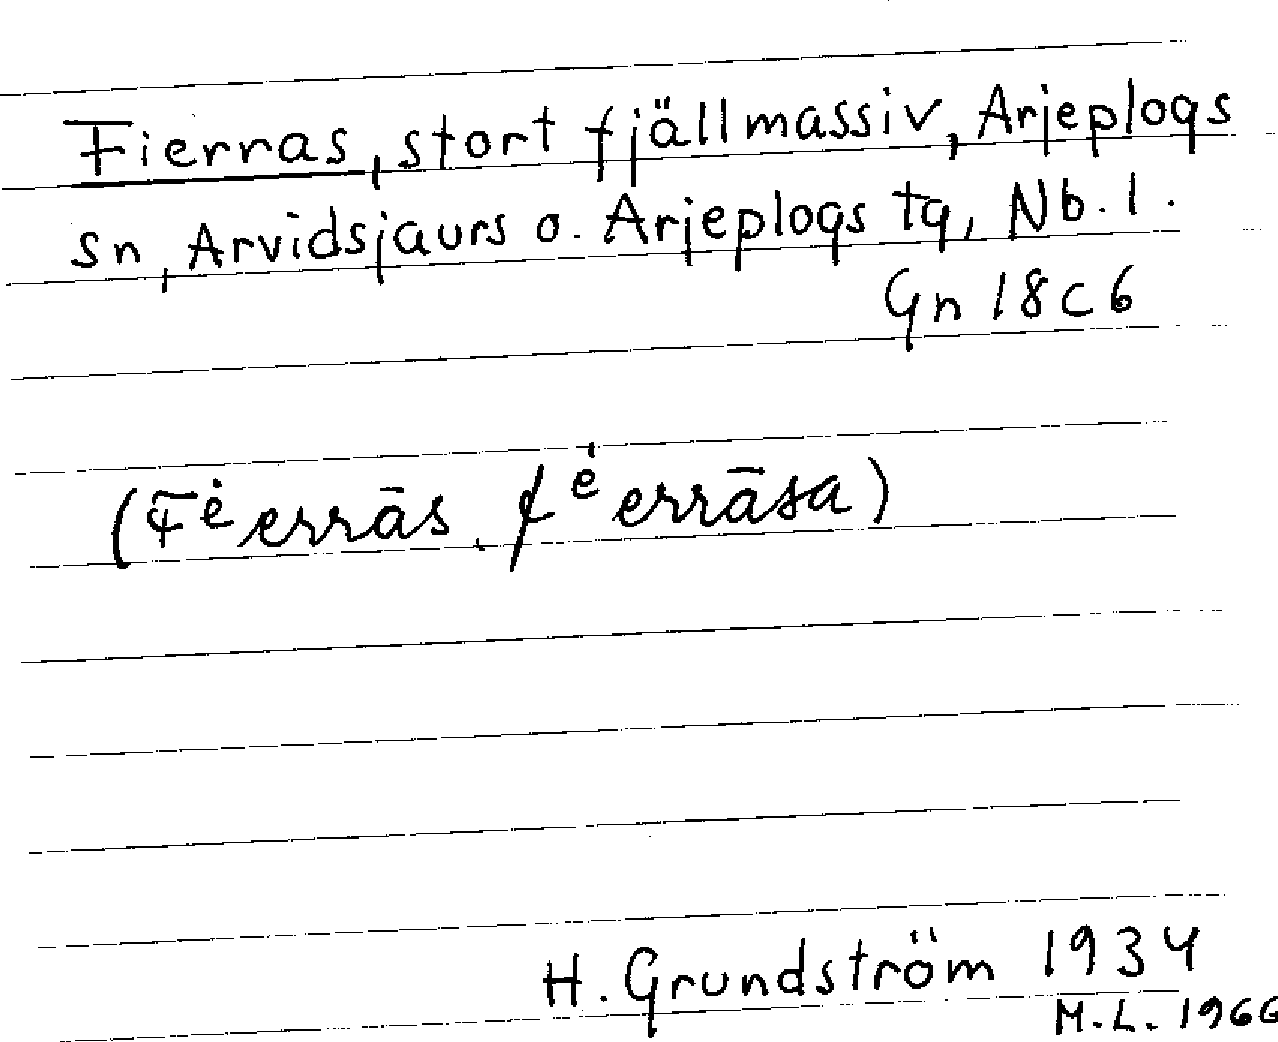 Fierras, stort fjällmassiv, Arjeplogs
sn, Arvidsjaurs o. Arjeplogs tg, Nb. l.
Gn 18 C 6
(Fėerrās, fėerrāsa)
H. Grundström 1934
M.L. 1966